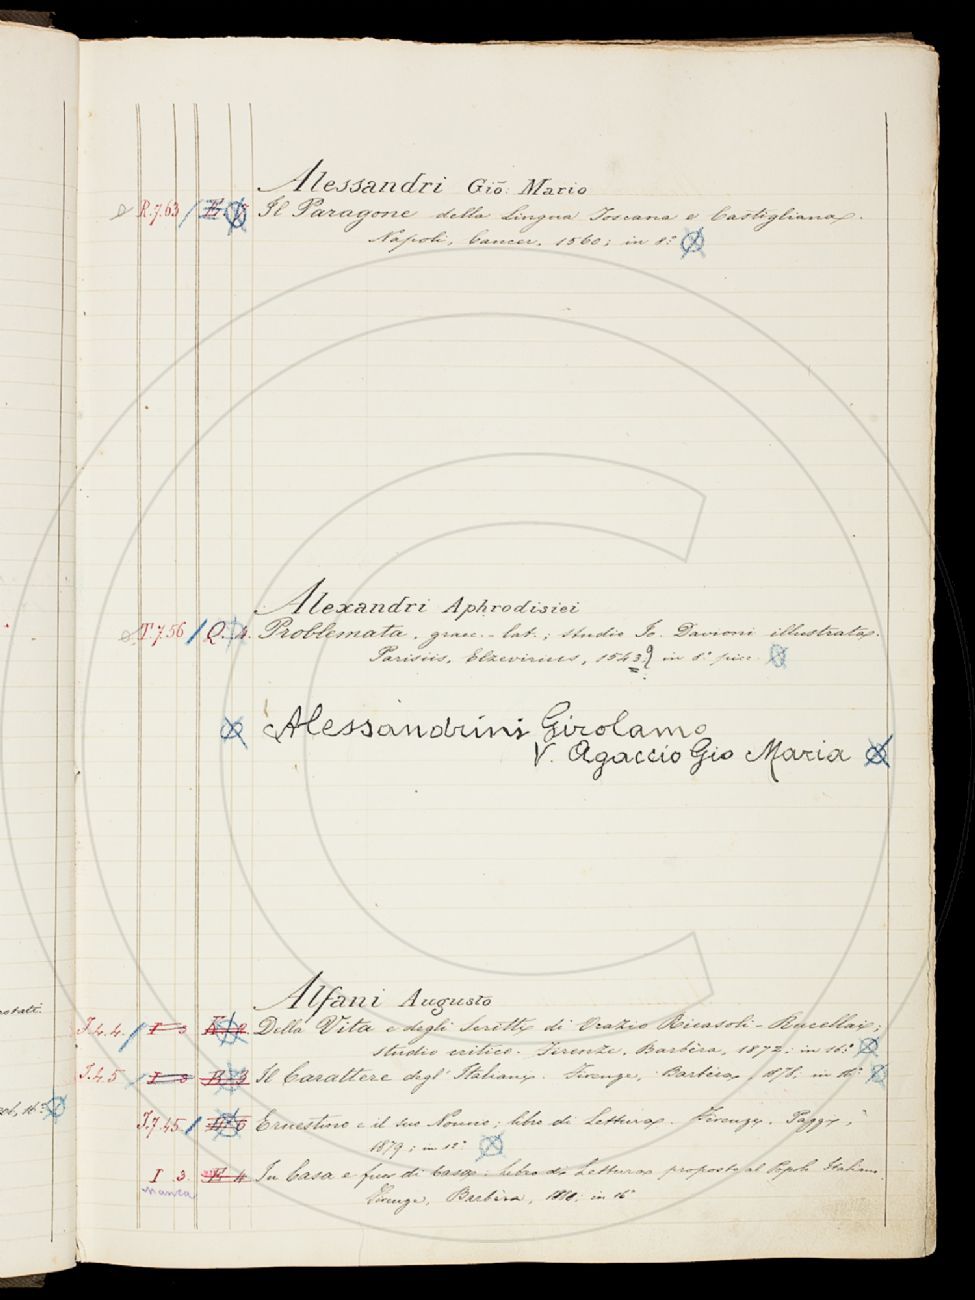 Alessandri Gio: Mario
R.7.63 Il Paragone della Lingua Toscana e Castigliana.
Napoli, Cancer, 1560; in 8°
Alexandri Aphrodisiei
T.7.56 Q. 4. Problemata, graec.-lat.; studio Io. Davioni illustrata.
Parisiis, Elzevirius, 1543, in 8° picc.
Alessandrini Girolamo
V. Agaccio Gio Maria
Alfani Augusto
I.4.4. I 3 Della Vita e degli Scritti di Orazio Ricasoli-Rucellai;
studio critico. Firenze, Barbèra, 1872; in 16°
I.4.5 Il Carattere degl' Italiani. Firenze, Barbèra, 1878; in 16°
I.7.45 Ernestino e il suo Nonno; libro di Lettura. Firenze, Paggi,
1879; in 12°
I 3 In Casa e fuor di Casa. libro di Lettura proposto al Italiano
manca Firenze, Barbèra, in 16°